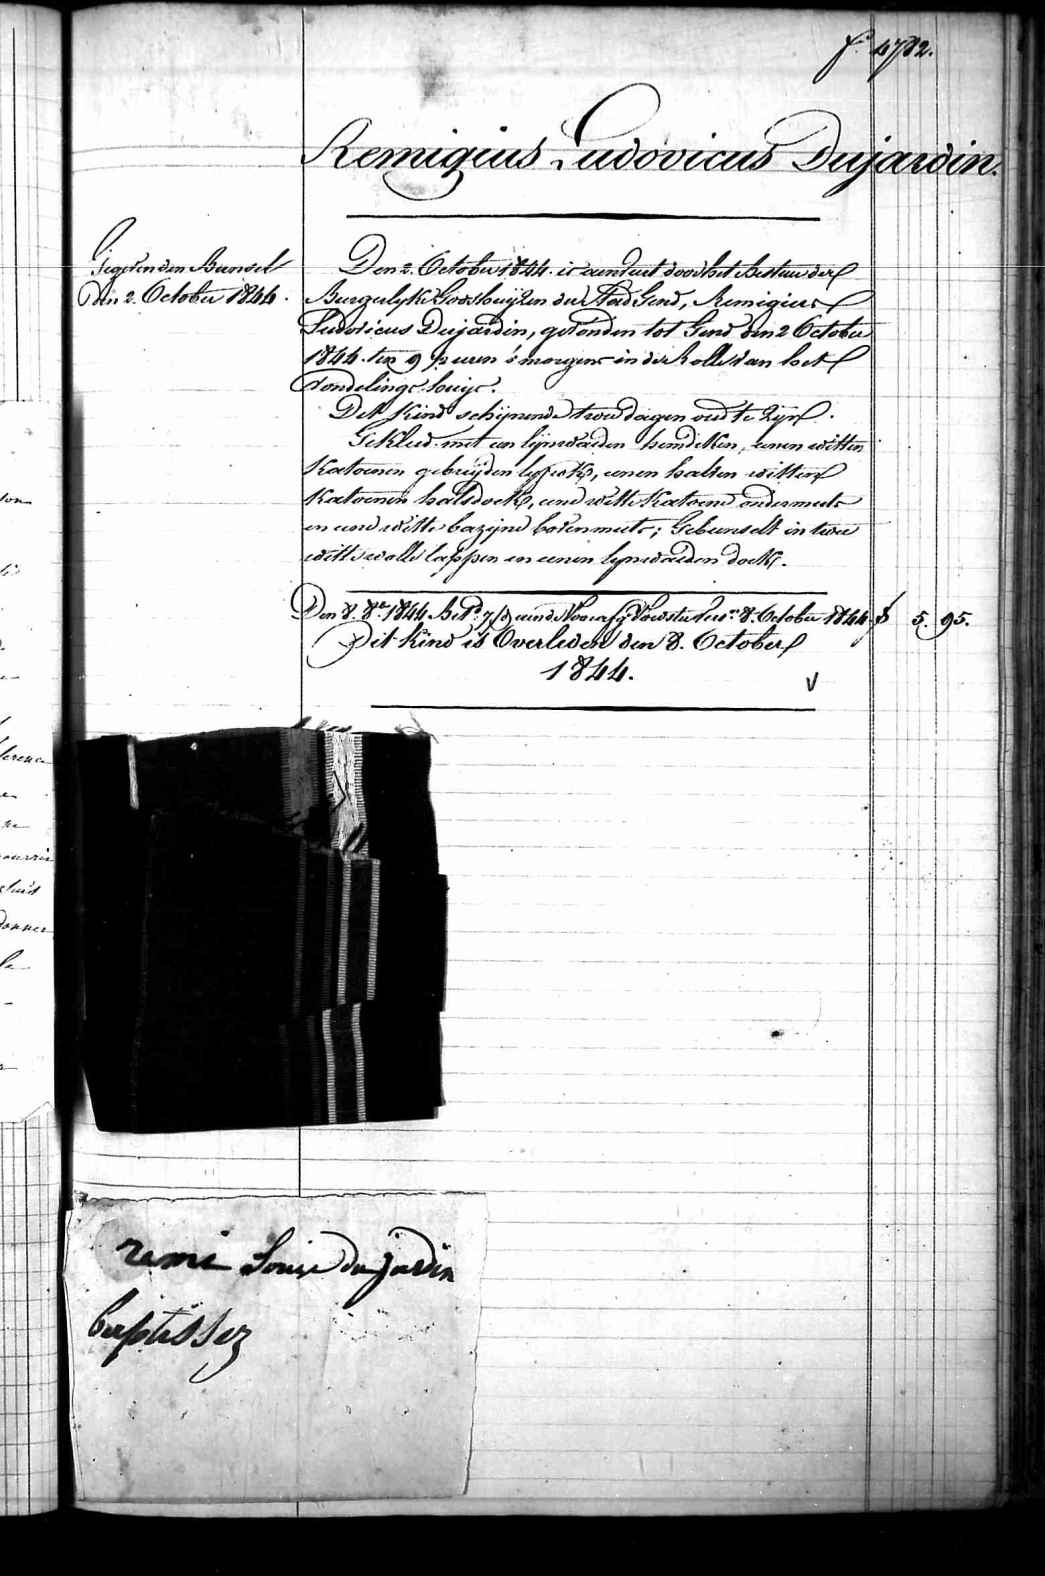 f. 4782.
Remigius Ludovicus Dujardin.
Gegeven den Bunsel
den 2. October 1844.
Den 2. October 1844. is aenveert door het Bestuer der
Burgerlyke Godshuyzen der Stad Gend, Remigius
Ludovicus Dujardin, gevonden tot Gend den 2 October
1844. ten 9 uren 's morgens in de rolle van het
Vondelings-huys.
Dit kind schijnende twee dagen oud te zijn.
Gekleed met een lijnwaeden hemdeken, eenen witten
katoenen gebreyden, eenen halven witten
katoenen halsdoek, eene witte katoene ondermuts
en eene witte bazijne bovenmuts; Gebunselt in twee
witte wolle lappen en eenen lijnwaeden doek.
Den 8. 8re 1844. October 1844 f 5. 95.
Dit kind is Overleden den 8. October
1844.
V
remi Louis du jardin
baptissez